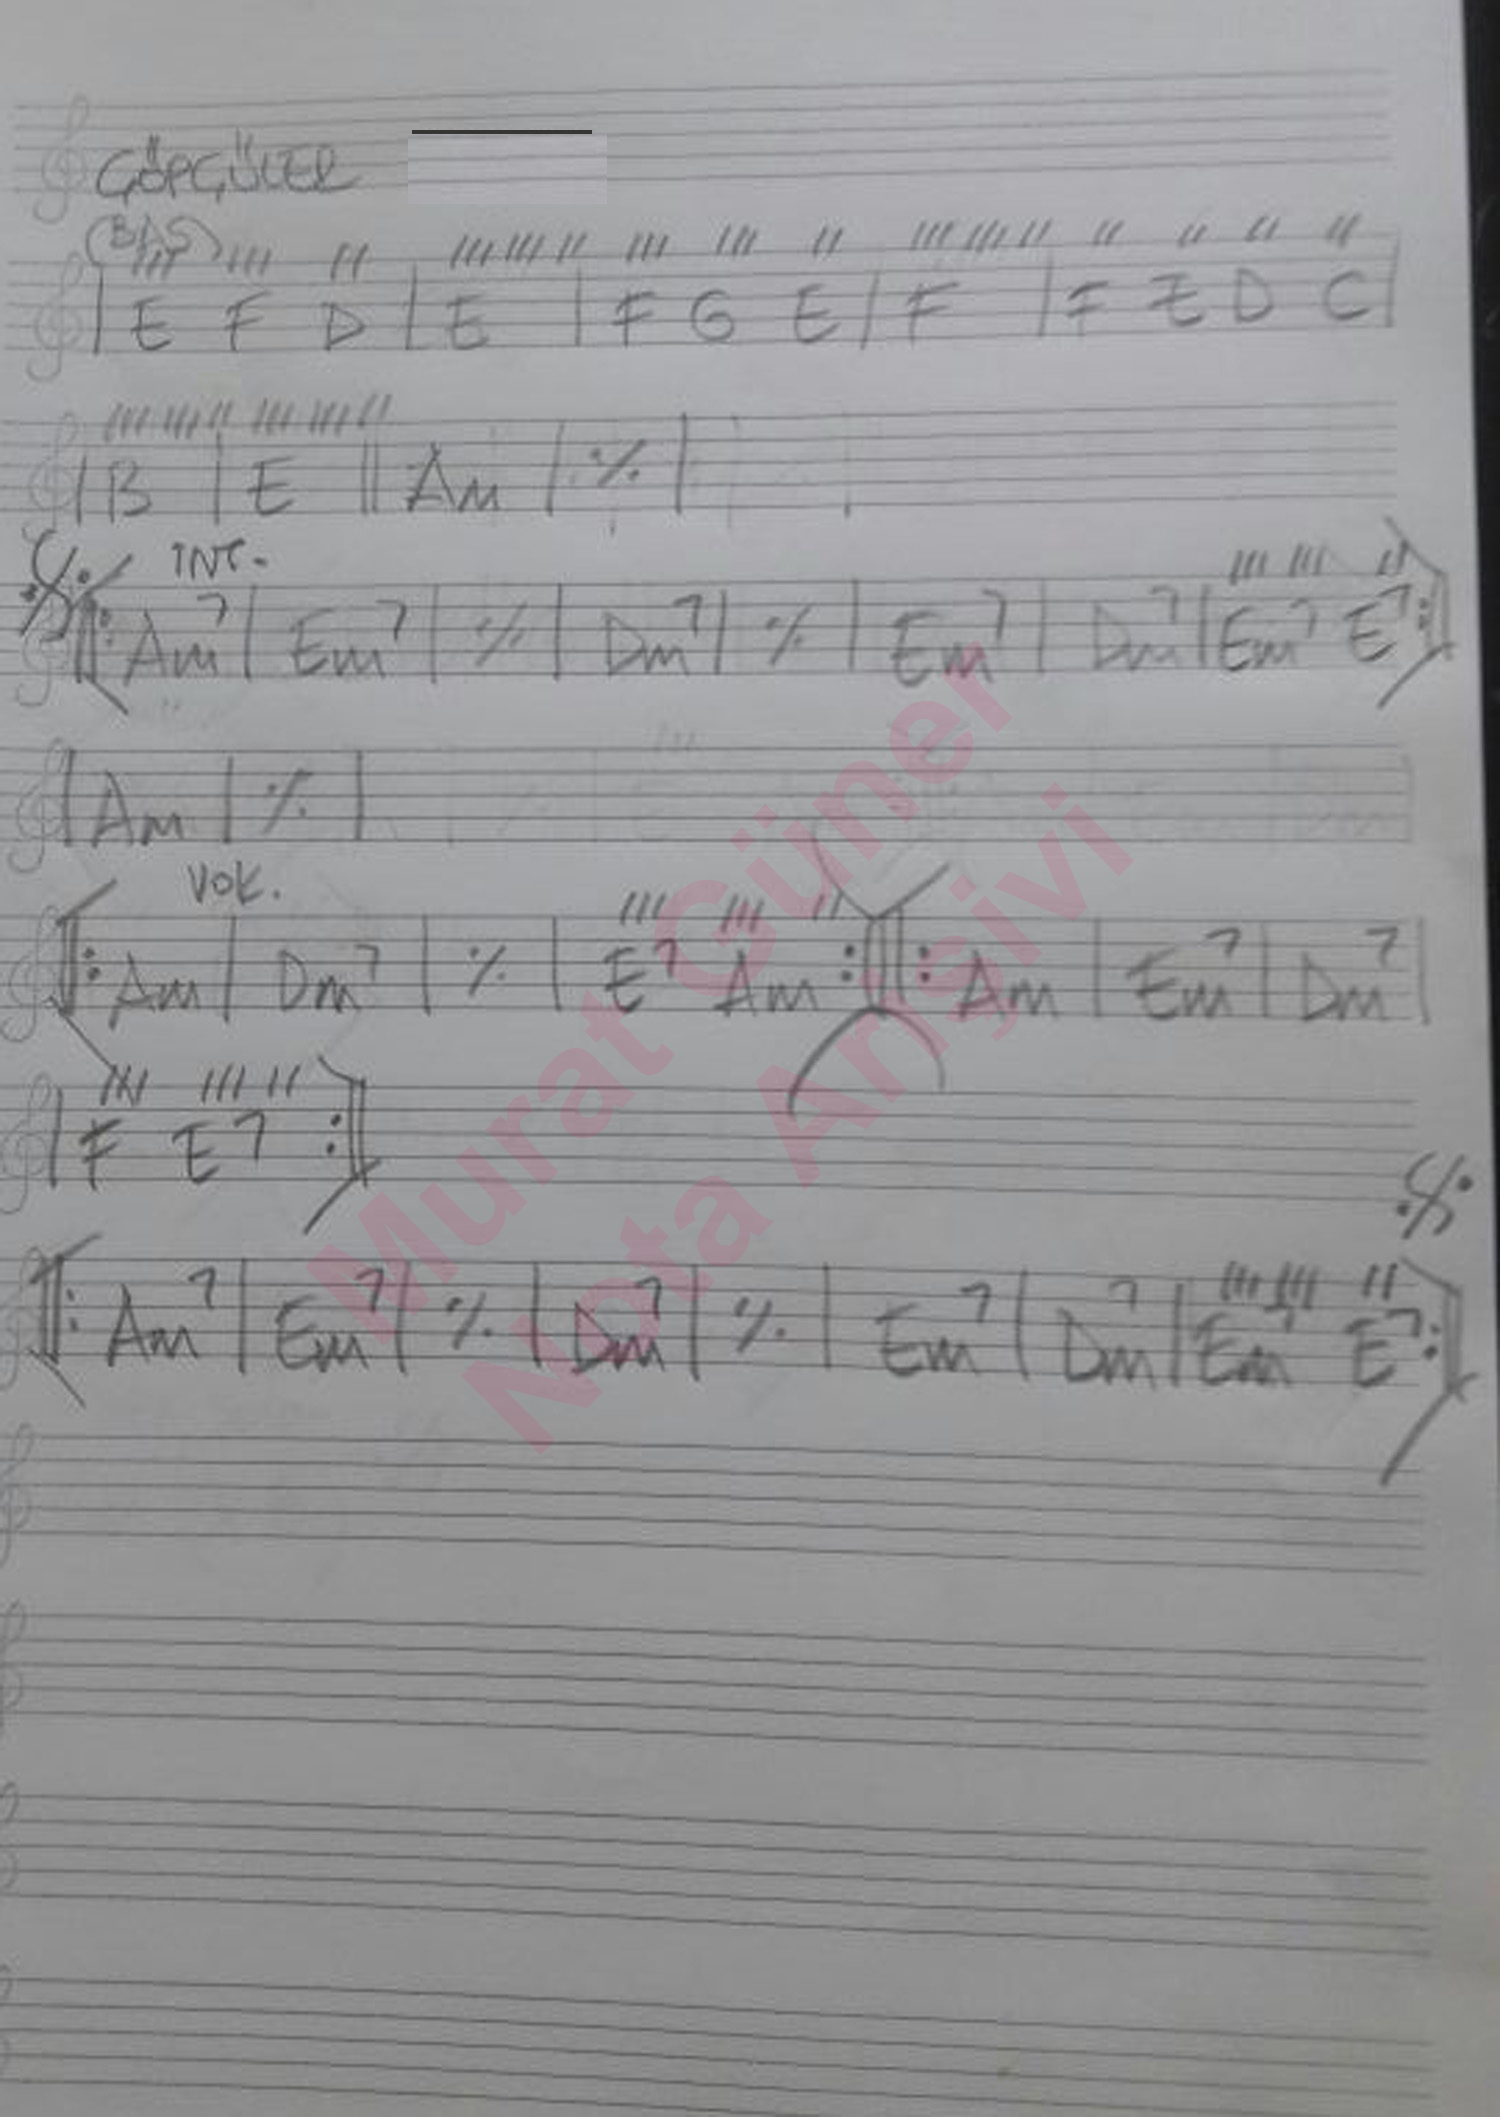 ÇÖPÇÜLER
(BAS)
/// /// // /// /// // /// /// // /// /// // // // // //
| E F D | E | F G E | F | F E D C |
/// /// // /// /// //
| B | E || Am | ٪ |
INT.
/// /// //
𝄋 ‖: Am7 | Em7 | ٪ | Dm7 | ٪ | Em7 | Dm7 | Em7 E7 :‖
| Am | ٪ |
VOK.
/// /// //
‖: Am | Dm7 | ٪ | E7 Am :‖: Am | Em7 | Dm7 |
/// /// //
| F E7 :‖
𝄋
/// /// //
‖: Am7 | Em7 | ٪ | Dm7 | ٪ | Em7 | Dm7 | Em7 E7 :‖
Murat Güner
Nota Arşivi